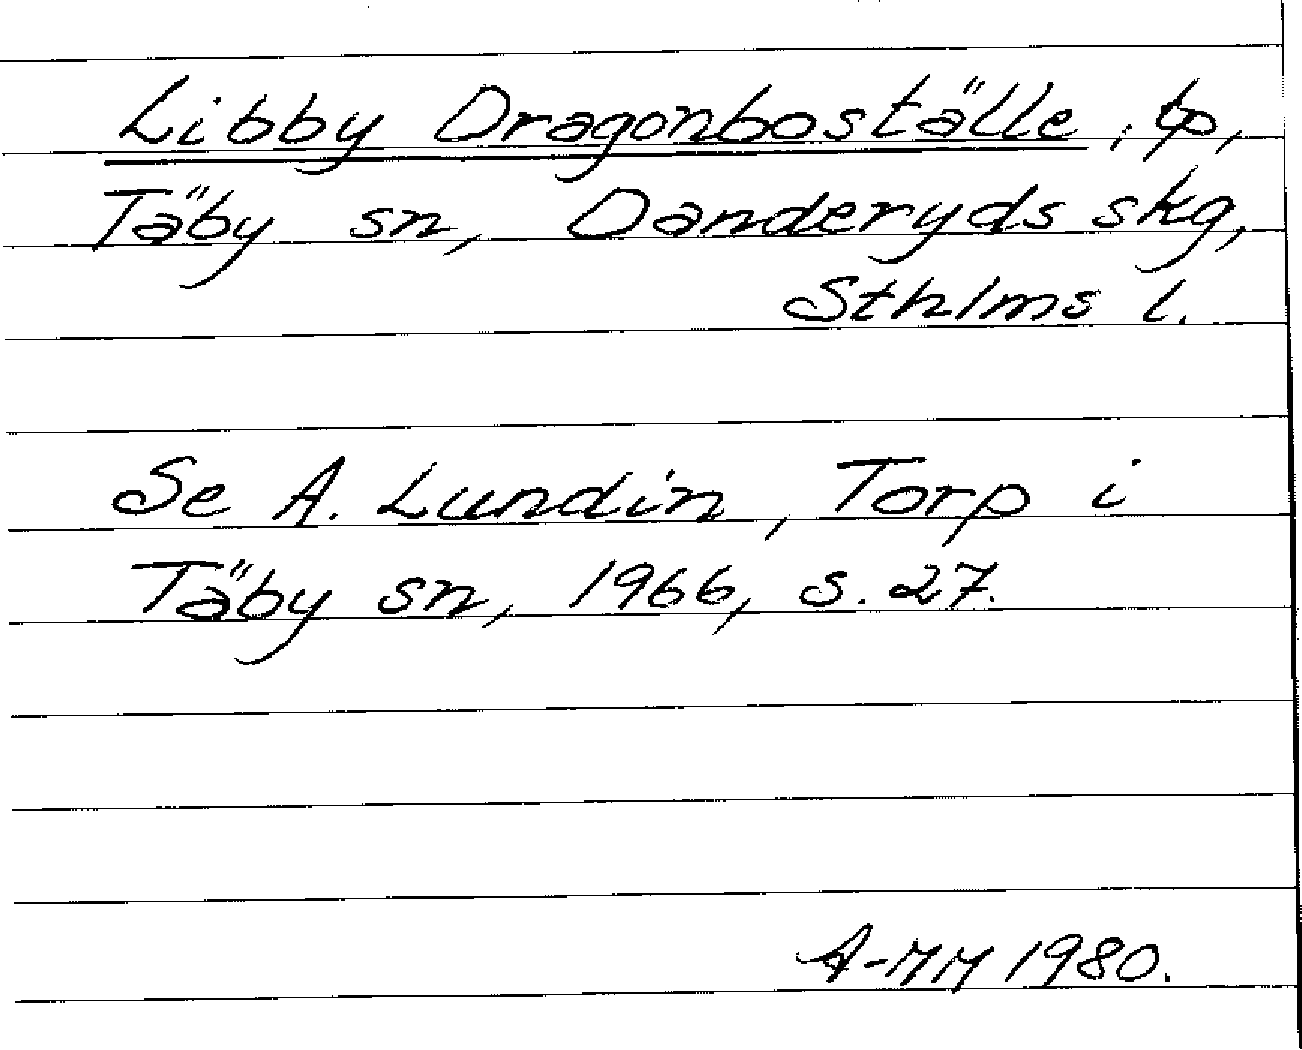 Libby Dragonboställe, tp,
Täby sn, Danderyds skg,
Sthlms l.
Se A. Lundin, Torp i
Täby sn, 1966, s. 27.
A-MM 1980.